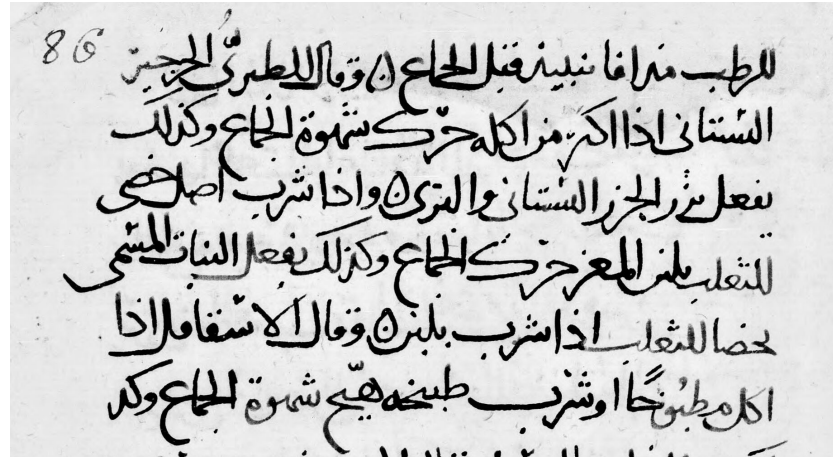 86
للرطب منه افا نبينه قبل الجماع ٥ وقال الطبري الجرجير
البستاني اذا اكثر من اكله حرّك شهوة الجماع وكذلك
يفعل بزر الجزر البستاني والبرى ٥ واذا شرب اصل خصى
الثعلب بلبن المعز حرّك الجماع وكذلك يفعل النبات المسمى
بخصا الثعلب اذا شرب بلبن ٥ وقال الاسقافل اذا
اكل مطبوخًا او شرب طبيخه هيّج شهوة الجماع وكذ